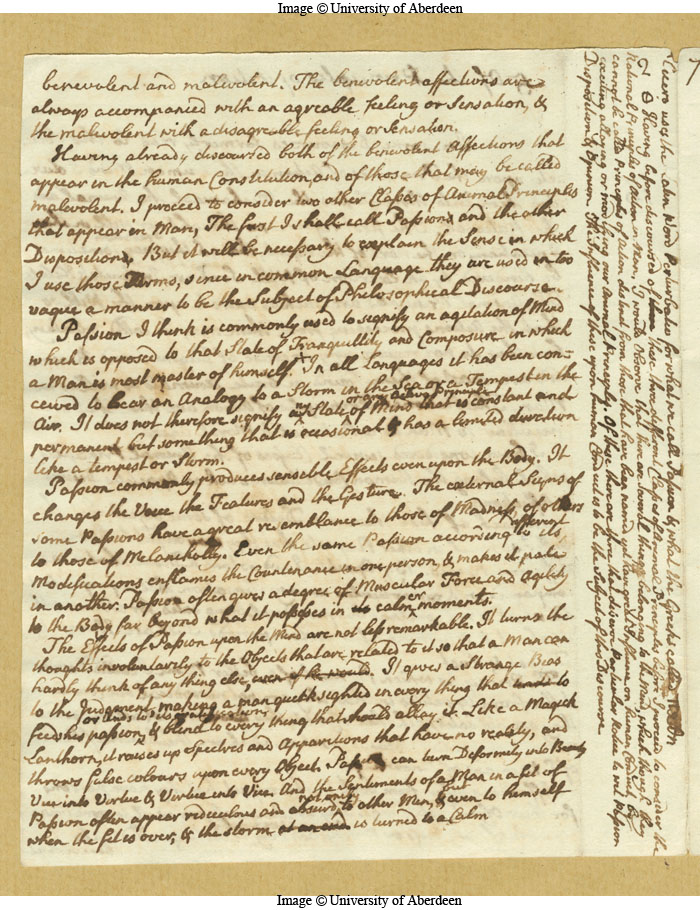 Image © University of Aberdeen
benevolent and malevolent. The benevolent affections are
always accompanied with an agreable feeling or Sensation, &
the malevolent with a disagreable feeling or Sensation.
Having already discoursed both of the benevolent Affections that
appear in the human Constitution, and of those that may be called
malevolent. I proceed to consider two other Classes of Animal Principles
that appear in Man, The first I shall call Passions and the other
Dispositions. But it will be necessary to explain the Sense in which
I use those Terms, since in common Language they are used in too
vague a manner to be the Subject of Philosophical Discourse.
Passion I think is commonly used to signify an agitation of Mind
which is opposed to that State of Tranquillity and Composure in which
a Man is most master of himself. In all Languages it has been con-
ceived to bear an Analogy to a Storm in the Sea or a Tempest in the
or any active Principle
Air. It does not therefore signify any State of Mind that is constant and
permanent but something that is occasional & has a limited duration
like a tempest or Storm.
Passion commonly produces sensible Effects even upon the Body. It
changes the Voice the Features and the Gesture. The external Signs of
some Passions have a great resemblance to those of Madness, of others
different
to those of Melancholly. Even the same Passion according to its
Modifications enflames the Countenance in one person, & makes it pale
in another. Passion often gives a degree of Muscular Force and Agility
to the Body far beyond what it possesses in calmer moments.
The Effects of Passion upon the Mind are not less remarkable. It turns the
thoughts involuntarily to the Objects that are related to it so that a Man can
hardly think of any thing else, even if he would. It gives a Strange Bias
to the Judgment, making a man quicksighted in every thing that tends to
or tends to its gratification,
feed his passion, & blind to every thing that should allay it. Like a Magick
Lanthorn, it raises up Spectres and Apparitions that have no reality, and
throws false colours upon every Object. Passion can turn Deformity into Beauty
Vice into Virtue & Virtue into Vice. And the Sentiments of a Man in a fit of
not only but
Passion often appear rediculous and absurd, to other Men, & even to himself
when the fit is over, & the storm at an end is turned to a Calm
7
Cicero uses the Latin Word Perturbatio for what we call Passion & what the Greeks called
Having before discoursed of these three different Classes of Animal Principles before I proceed to consider the
Rational Principles of Action in Man, I would observe that there are several things belonging to the Mind, which though they
cannot be called Principles of Action distinct from those that have been named yet have great Influence on human Conduct, by
exciting allaying or modifying our Animal Principles. Of these there are three that deserve particular Notice to wit Passion
Disposition & Opinion. The Influence of these upon human Conduct is to be the Subject of this Discourse
Image © University of Aberdeen